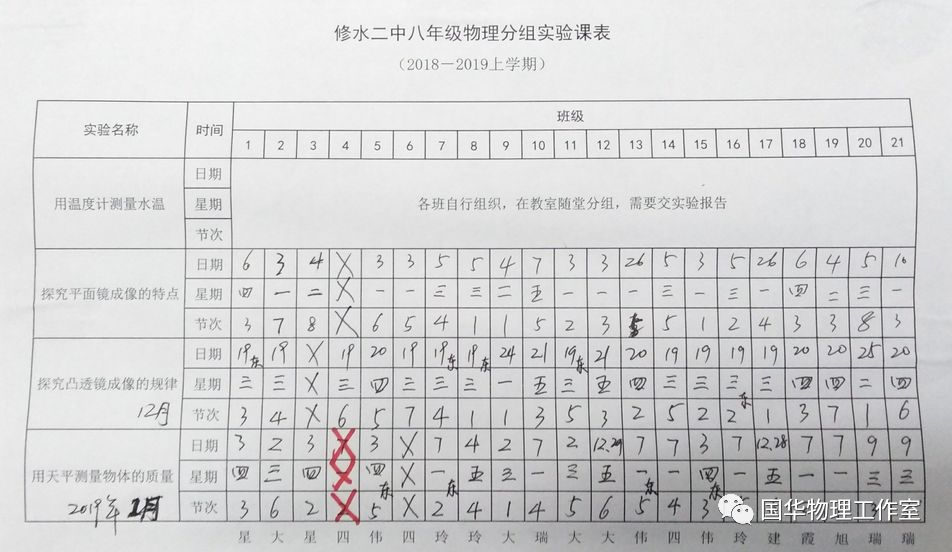 修水二中八年级物理分组实验课表
（2018－2019上学期）
实验名称 时间 班级
1 2 3 4 5 6 7 8 9 10 11 12 13 14 15 16 17 18 19 20 21
用温度计测量水温 日期 星期 节次 各班自行组织，在教室随堂分组，需要交实验报告
探究平面镜成像的特点
日期 6 3 4 X 3 3 5 5 4 7 3 3 26 5 3 5 26 6 4 5 10
星期 四 一 二 X 一 一 三 三 二 五 一 一 一 三 一 三 一 四 二 三 一
节次 3 7 8 X 6 5 4 1 1 5 2 3 5 1 2 4 3 3 8 3
探究凸透镜成像的规律
12月
日期 19东 19 X 19 20 19 19东 19东 24 21 19东 21 20 19 19 19 19 20 20 25 20
星期 三 三 X 三 四 三 三 三 一 五 三 五 四 三 三 三东 三 四 四 二 四
节次 3 4 X 6 5 7 4 1 1 3 5 3 2 5 2 2 1 3 7 1 6
用天平测量物体的质量
2019年1月
日期 3 2 3 3 X 7 4 2 7 2 12.29 7 7 3 7 12.28 7 7 9 9
星期 四 三 四 四东 X 一东 五 三 一 三 五 一东 一 四东 一 五 一 一 三 三
节次 3 6 2 5 X 2 4 1 4 5 6 5 4 3
星 大 星 四 伟 四 玲 玲 大 瑞 大 大 伟 四 伟 玲 建 霞 旭 瑞 瑞
国华物理工作室